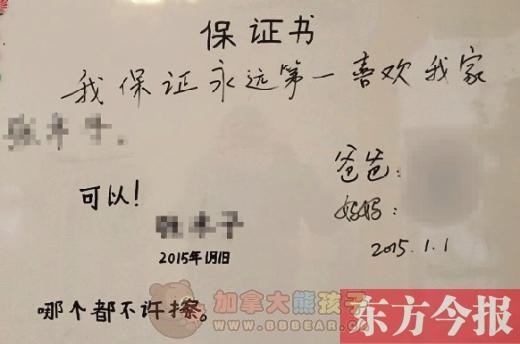 保证书
我保证永远第一喜欢我家
爸爸：
妈妈：
2015.1.1
可以！
2015年1月1日
哪个都不许擦。
加拿大熊孩子
WWW.BBBEAR.CC
东方今报